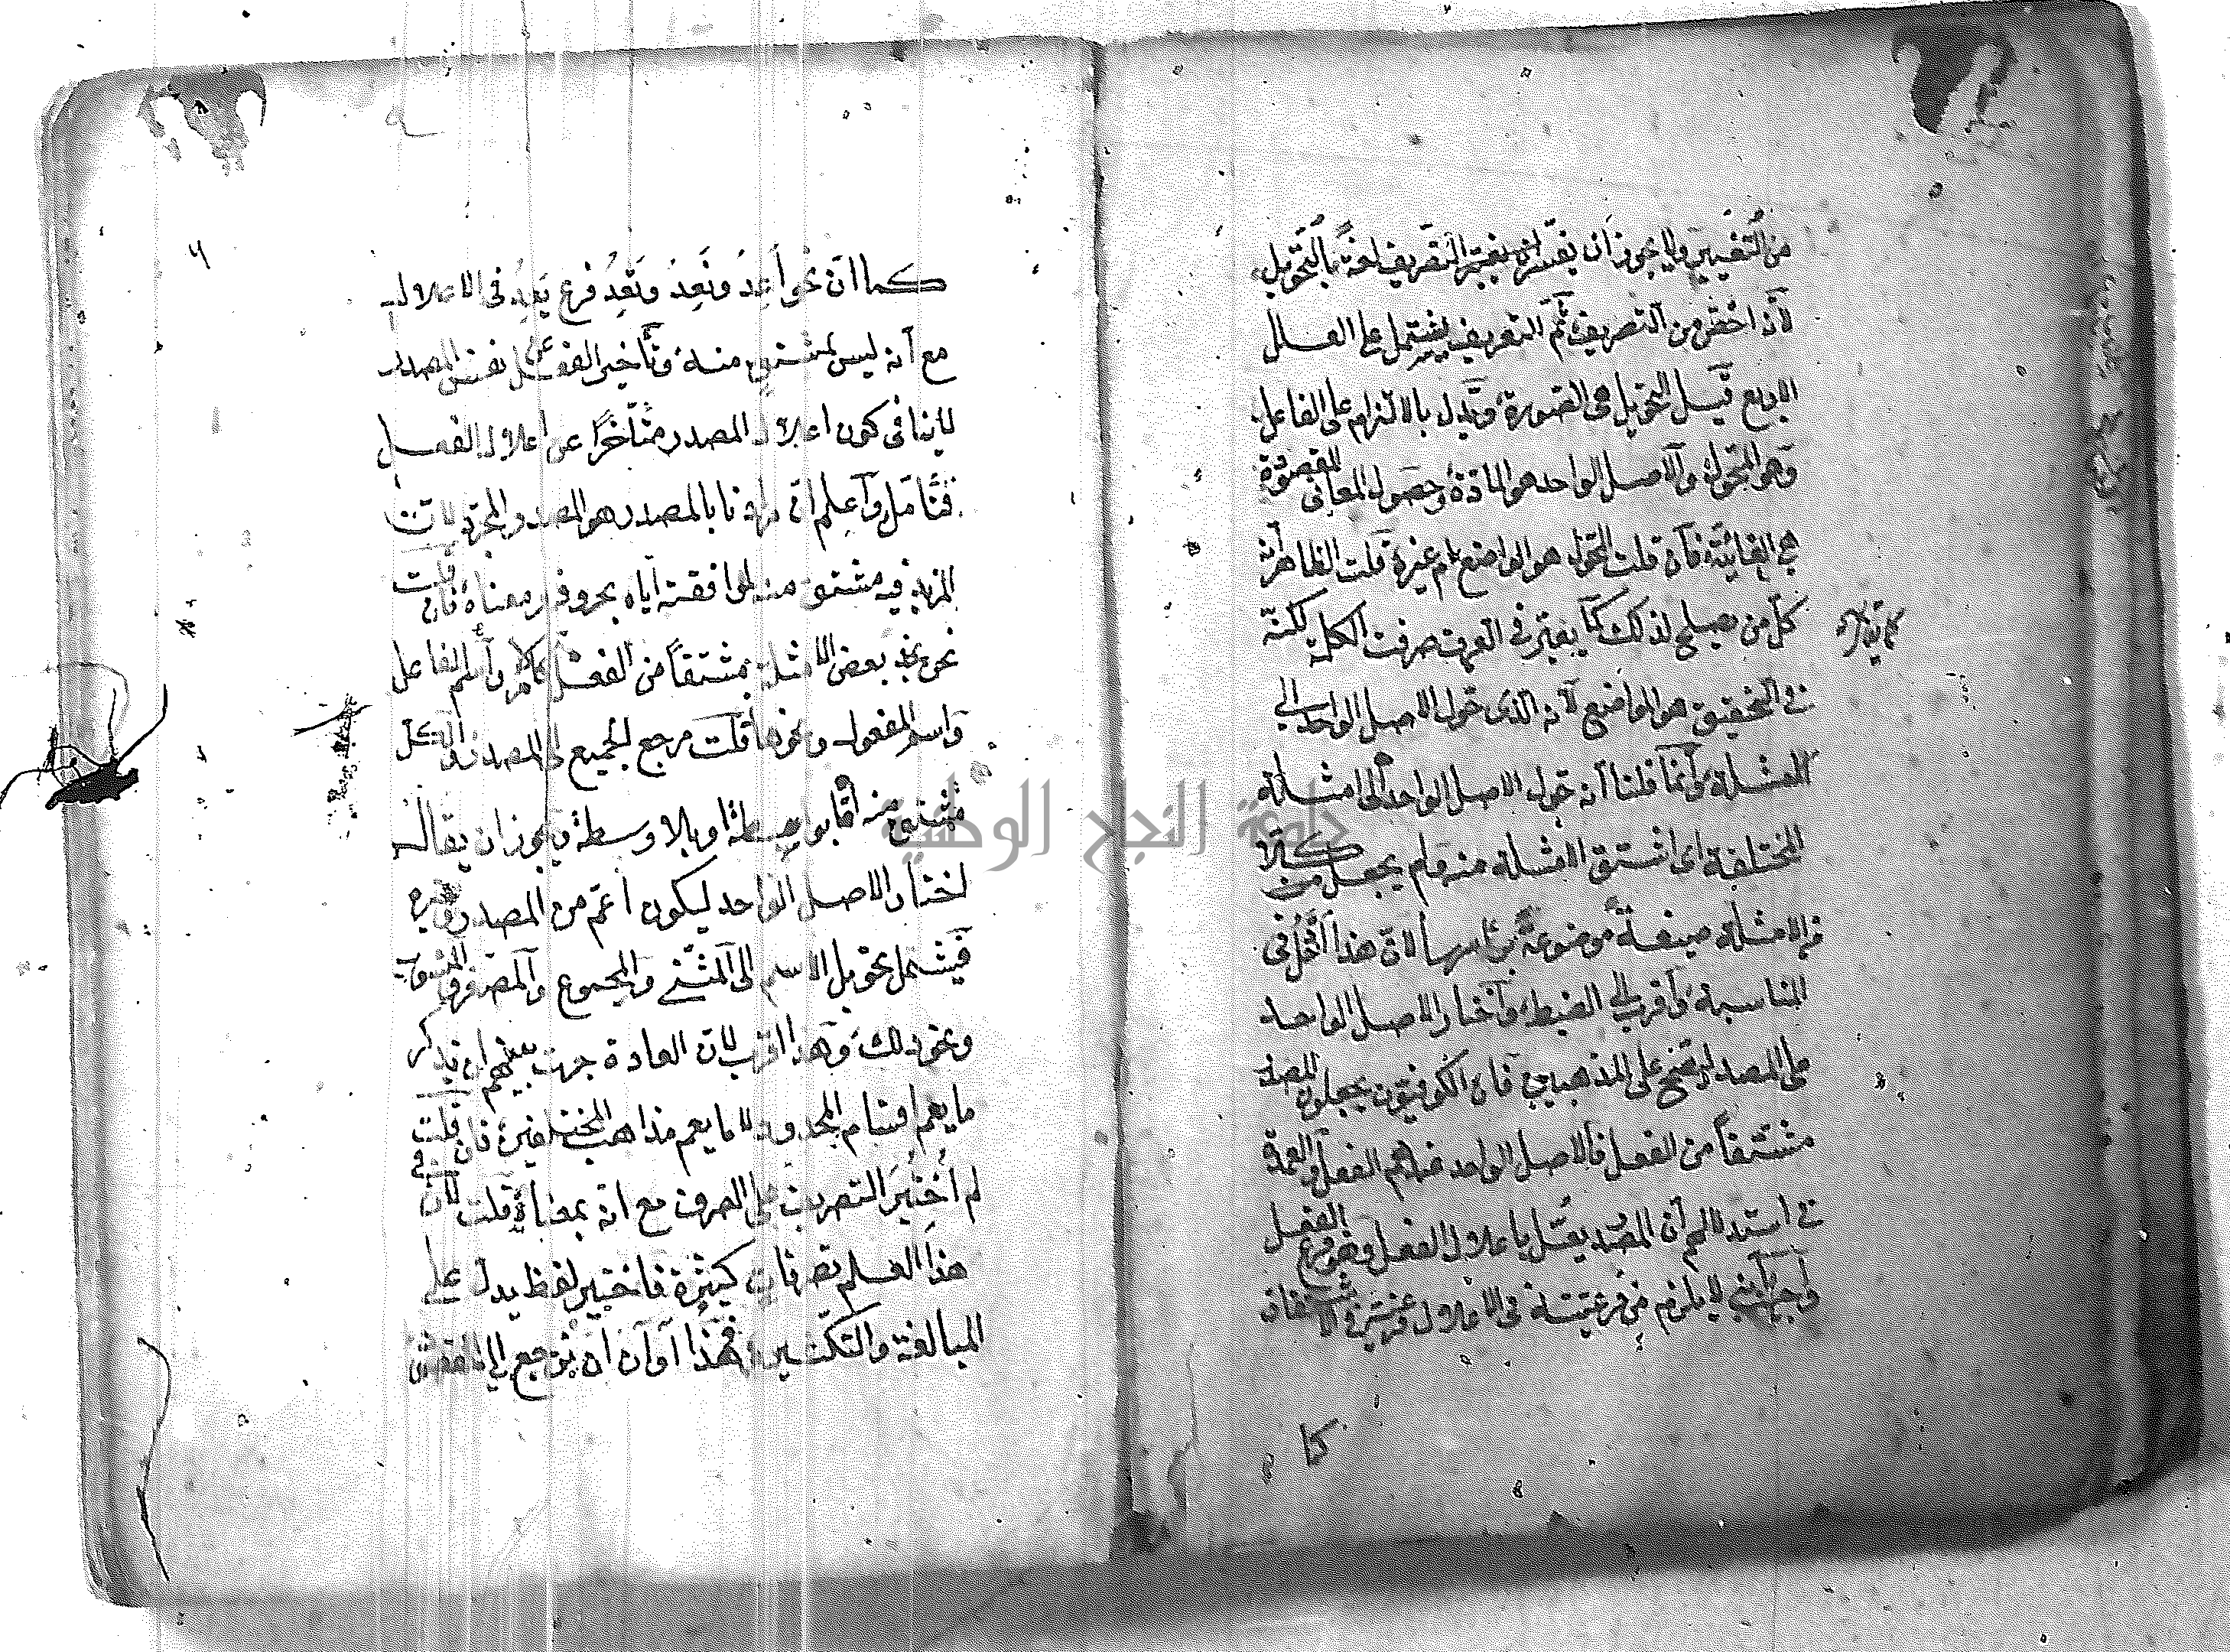 من التغيير ولا يجوز ان يفسر التصريف لغة بالتحويل
لانه اخص من التصريف ثم التعريف يشتمل على العلل
الاربع قيل التحويل هى الصورة وتدل بالالتزام على الفاعل
وهو المحول والاصل الواحد هو المادة وحصول المعانى المقصودة
هى الغائية فان قلت المحول هو الواضع ام غيره قلت الظاهر انه
كل من يصلح لذلك كما يقال فى العرف صرفت الكلمة لكنه
فى التحقيق هو الواضع لانه الذى حول الاصل الواحد الى
الامثلة وانما قلنا انه حول الاصل الواحد الى امثلة
المختلفة اى اشتق الامثلة منه ولم يجعل كلا من
من الامثلة صيغة موضوعة برأسها لان هذا ادخل فى
المناسبة واقرب الى الضبط واختار الاصل الواحد
على المصدر ليصح على المذهبين فان الكوفيين يجعلون المصدر
مشتقا من الفعل فالاصل الواحد عندهم الفعل والعمدة
فى استدلالهم ان المصدر يعتل باعلال الفعل فهو فرع الفعل
واجيب بانه لا يلزم من فرعيته فى الاعلال فرعيته فى الاشتقاق
كما يقال
كما
٦
كما ان نحو اعد ونعد وتعد فرع يعد فى الاعلال
مع انه ليس بمشتق منه وتأخير الفعل عن نفس المصدر
لا ينافى كون اعلال المصدر متأخرا عن اعلال الفعل
فتأمل واعلم ان مرادنا بالمصدر هو المصدر المجرد لان
المزيد فيه مشتق منه لموافقته اياه بحروفه ومعناه فان قلت
نحن نجد بعض الامثلة مشتقا من الفعل كالامر واسم الفاعل
واسم المفعول ونحوها قلت مرجع الجميع الى المصدر والكل
مشتق منه اما بواسطة او بلا واسطة ويجوز ان يقال
اختار الاصل الواحد ليكون اعم من المصدر وغيره
فيشتمل تحويل الاسم الى المثنى والمجموع والمصغر والمنسوب
ونحو ذلك وهذا اقرب لان العادة جرت بينهم ان يذكر
ما يعم اقسام المحدود لا ما يعم مذاهب المختلفين فان قلت
لم اختير التصريف على الصرف مع انه بمعناه قلت لان فى
هذا العلم تصرفات كثيرة فاختير لفظ يدل على
المبالغة والتكثير فهذا اوان ان نرجع الى المقصود